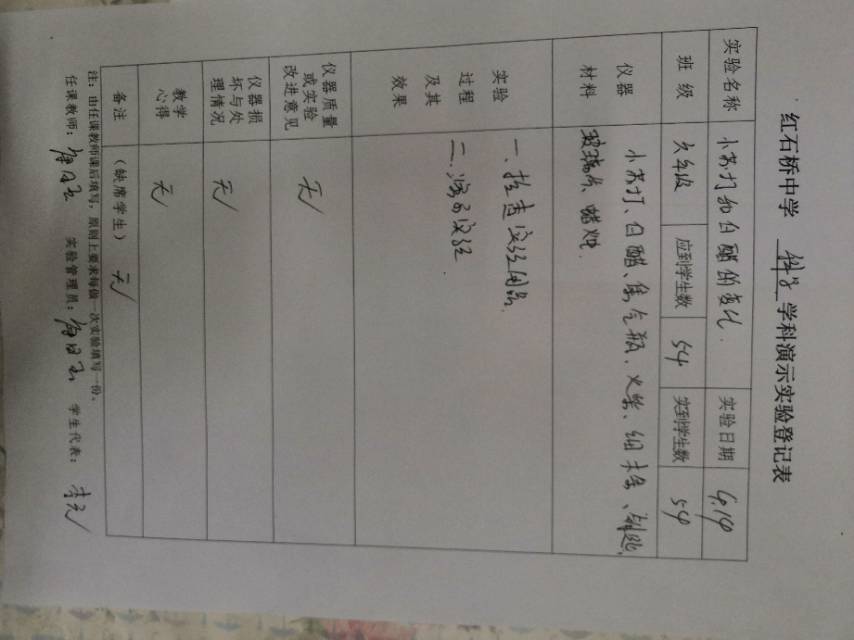 红石桥中学 科学 学科演示实验登记表
实验名称 小苏打和白醋的变化 实验日期 4.14
班级 六年级 应到学生数 54 实到学生数 54
仪器材料 小苏打、白醋、集气瓶、火柴、细木条、制匙、
玻璃片、蜡烛
实验过程及其效果 一、检查实验用品.
二、演示实验.
仪器质量或实验改进意见 无
仪器损坏与处理情况 无
教学心得 无
备注 (缺席学生) 无
注:由任课教师课后填写,原则上要求每做一次实验填写一份。
任课教师: 实验管理员: 学生代表: